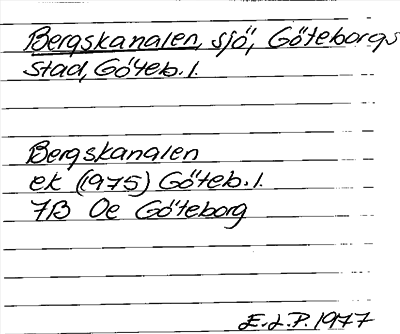 Bergskanalen, sjö, Göteborgs
stad, Göteb. l.
Bergskanalen
ek (1975) Göteb. l.
7B 0e Göteborg
E.L.P. 1977